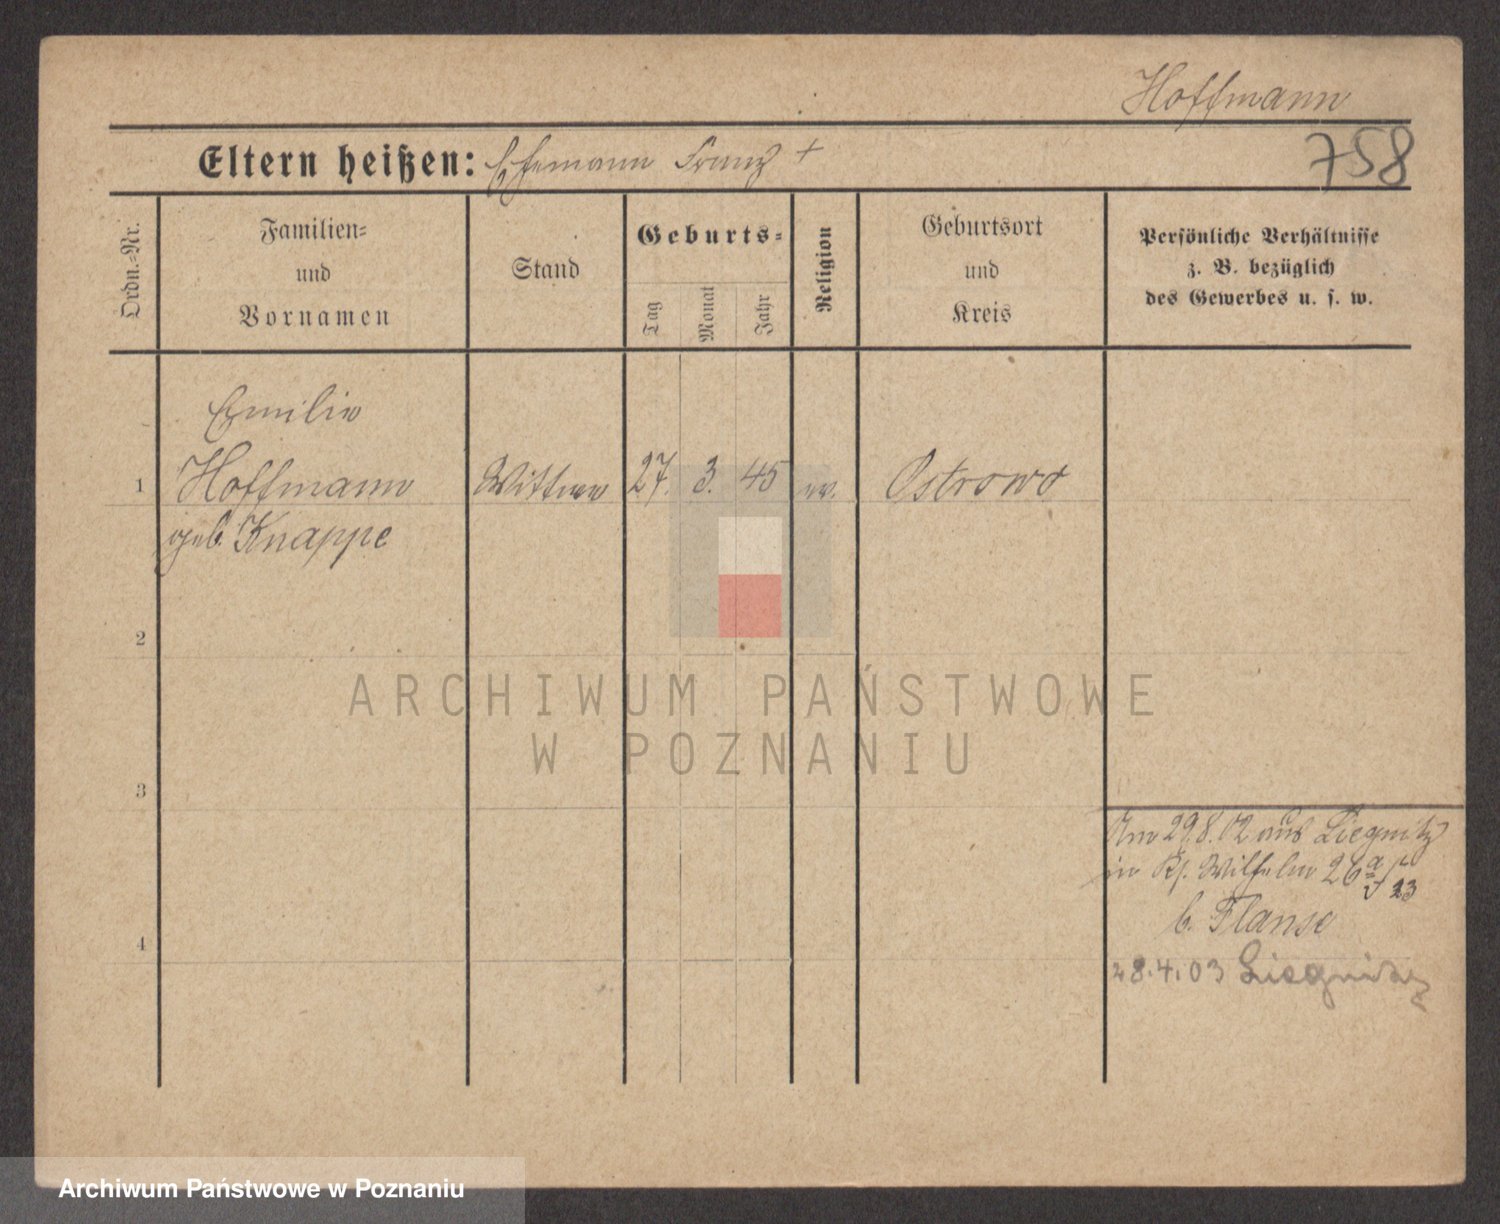 Hoffmann
758
Eltern heißen: Ehemann Franz +
Ordn.-Nr.
Familien-
und
Vornamen
Stand
Geburts-
Tag
Monat
Jahr
Religion
Geburtsort
und
Kreis
Persönliche Verhältnisse
z. B. bezüglich
des Gewerbes u. s. w.
Emilie
1 Hoffmann Wittwe 27. 3. 45 ev. Ostrowo
geb. Knappe
2
3
4
Am 29.8.02 aus Liegnitz
in Ks. Wilhelm 26
b. Flanse
28.4.03 Liegnitz
ARCHIWUM PAŃSTWOWE
W POZNANIU
Archiwum Państwowe w Poznaniu